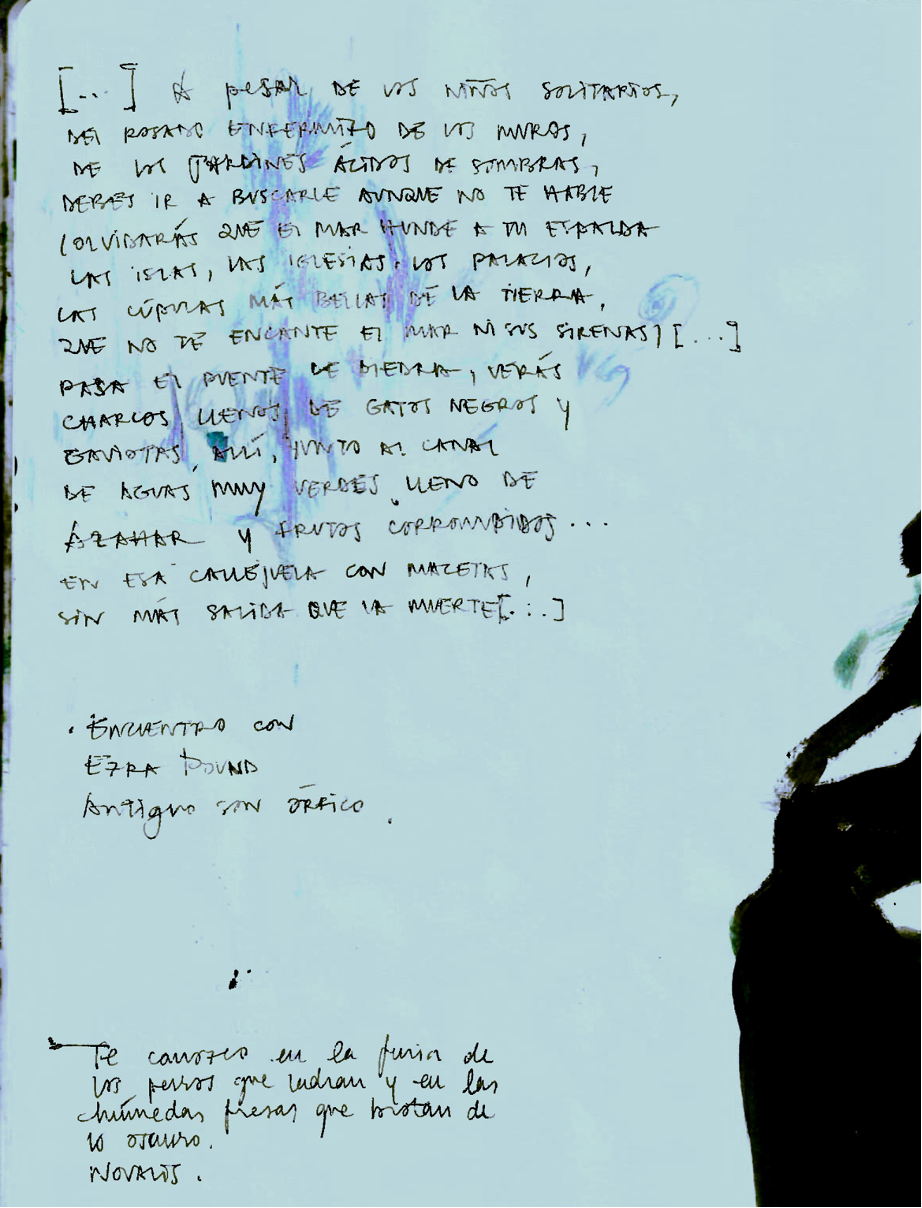 [...] A pesar DE LOS NIÑOS SOLITARIOS,
DEL ROSADO ENFERMIZO DE LOS MUROS,
DE LOS JARDINES ÁCIDOS DE SOMBRAS,
DEBES IR A BUSCARLE AUNQUE NO TE HABLE
(OLVIDARÁS QUE EL MAR HUNDE A TU ESPALDA
LAS ISLAS, LAS IGLESIAS, LOS PALACIOS,
LAS CÚPULAS MÁS BELLAS DE LA TIERRA,
QUE NO TE ENCANTE EL MAR NI SUS SIRENAS) [...]
PASA EL PUENTE DE PIEDRA, VERÁS
CHARCOS LLENOS DE GATOS NEGROS Y
GAVIOTAS, ALLÍ, JUNTO AL CANAL
DE AGUAS MUY VERDES LLENO DE
AZAHAR Y FRUTOS CORROMPIDOS...
EN ESA CALLEJUELA CON MACETAS,
SIN MÁS SALIDA QUE LA MUERTE[...]
. ENCUENTRO CON
EZRA POUND
Antiguo son ÓRFICO.
Te conozco en la furia de
los perros que ladran y en las
húmedas fresas que brotan de
lo oscuro.
NOVALIS.